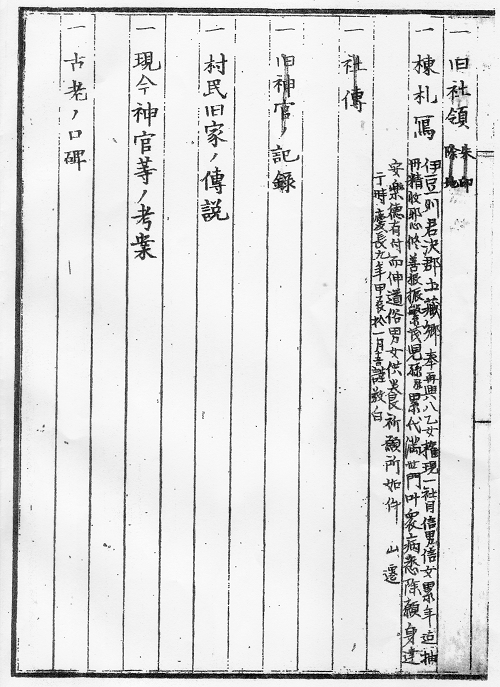 一 旧社領 朱印 除地
一 棟札写
伊豆州君沢郡土蔵郷 奉再興八乙女権現一社 信男信女累年 抽
再精 邪心修善 振繁茂児孫 累代満世門叶衆病悉除願身
安楽徳有付而伸道俗男女供 良祈願所如件 山還
于時慶長九年甲辰拾一月吉 謹敬白
一 社傳
一 旧神官ノ記録
一 村民旧家ノ傳説
一 現今神官等ノ考案
一 古老ノ口碑